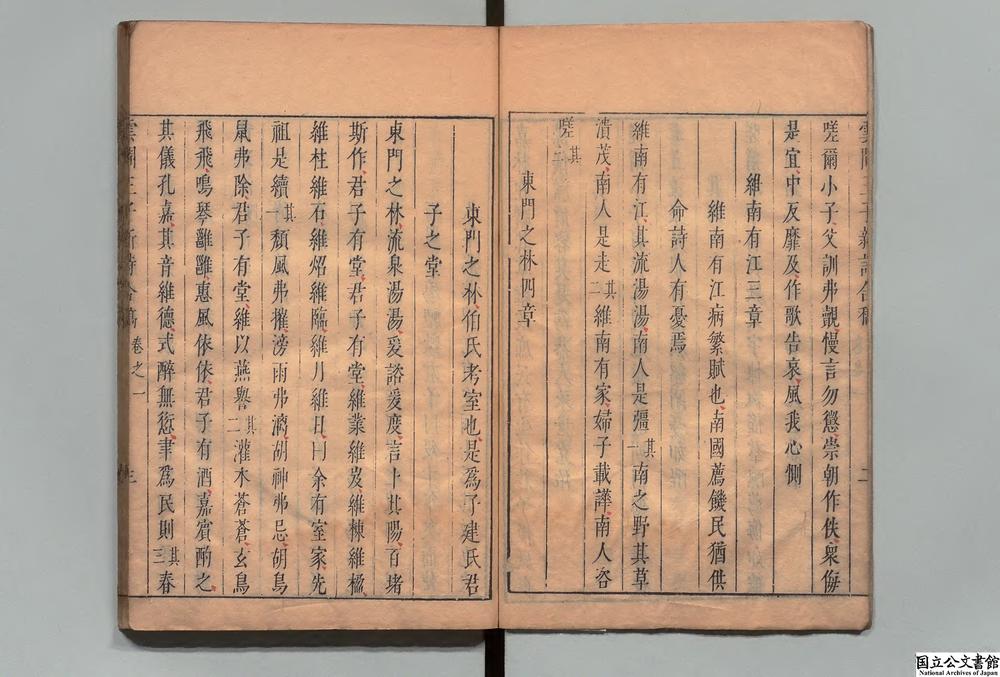 嗟爾小子父訓弗覿慢言勿懲崇朝作佚衆侮
是宜中反靡及作歌告哀風我心惻
維南有江三章
維南有江病繁賦也南國薦饑民猶供
命詩人有憂焉
維南有江其流湯湯南人是彊其一南之野其草
潰茂南人是走其二維南有家婦子載譁南人咨
嗟其三
東門之林四章
東門之林伯氏考室也是爲子建氏君
子之堂
東門之林流泉湯湯爰諮爰度言卜其陽百堵
斯作君子有堂君子有堂維業維岌維棟維楹
維柱維石維炤維臨維月維日曰余有室家先
祖是續其一頹風弗摧滂雨弗漓胡神弗忌胡鳥
鼠弗除君子有堂維以燕譽其二灌木蒼蒼玄鳥
飛飛鳴琴雝雝惠風依依君子有酒嘉賓酌之
其儀孔嘉其音維德式醉無愆聿爲民則其三春
雲間三子新詩合稿 卷之一 三
国立公文書館
National Archives of Japan